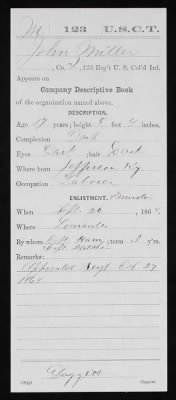 M | 123 | U.S.C.T.
John Miller
Co. , 123 Reg't U. S. Col'd Inf.
Appears on
Company Descriptive Book
of the organization named above.
DESCRIPTION.
Age 17 years; height 5 feet 4 inches.
Complexion Dark
Eyes Dark; hair Dark
Where born Jefferson Ky
Occupation Laborer
ENLISTMENT.
When Sept. 26, 1864.
Where Louisville
By whom ; term 3 y'rs.
Remarks:
Appointed Sergt Oct 27
1864
Copyist.